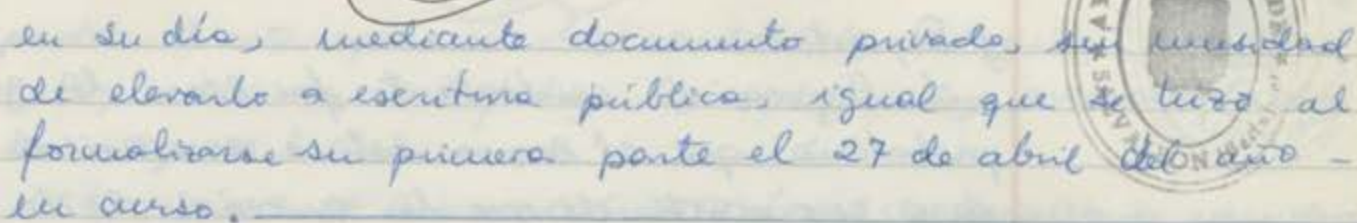 en su día, mediante documento privado, sin necesidad
de elevarlo a escritura pública, igual que se hizo al
formalizarse su primera parte el 27 de abril del año -
en curso.